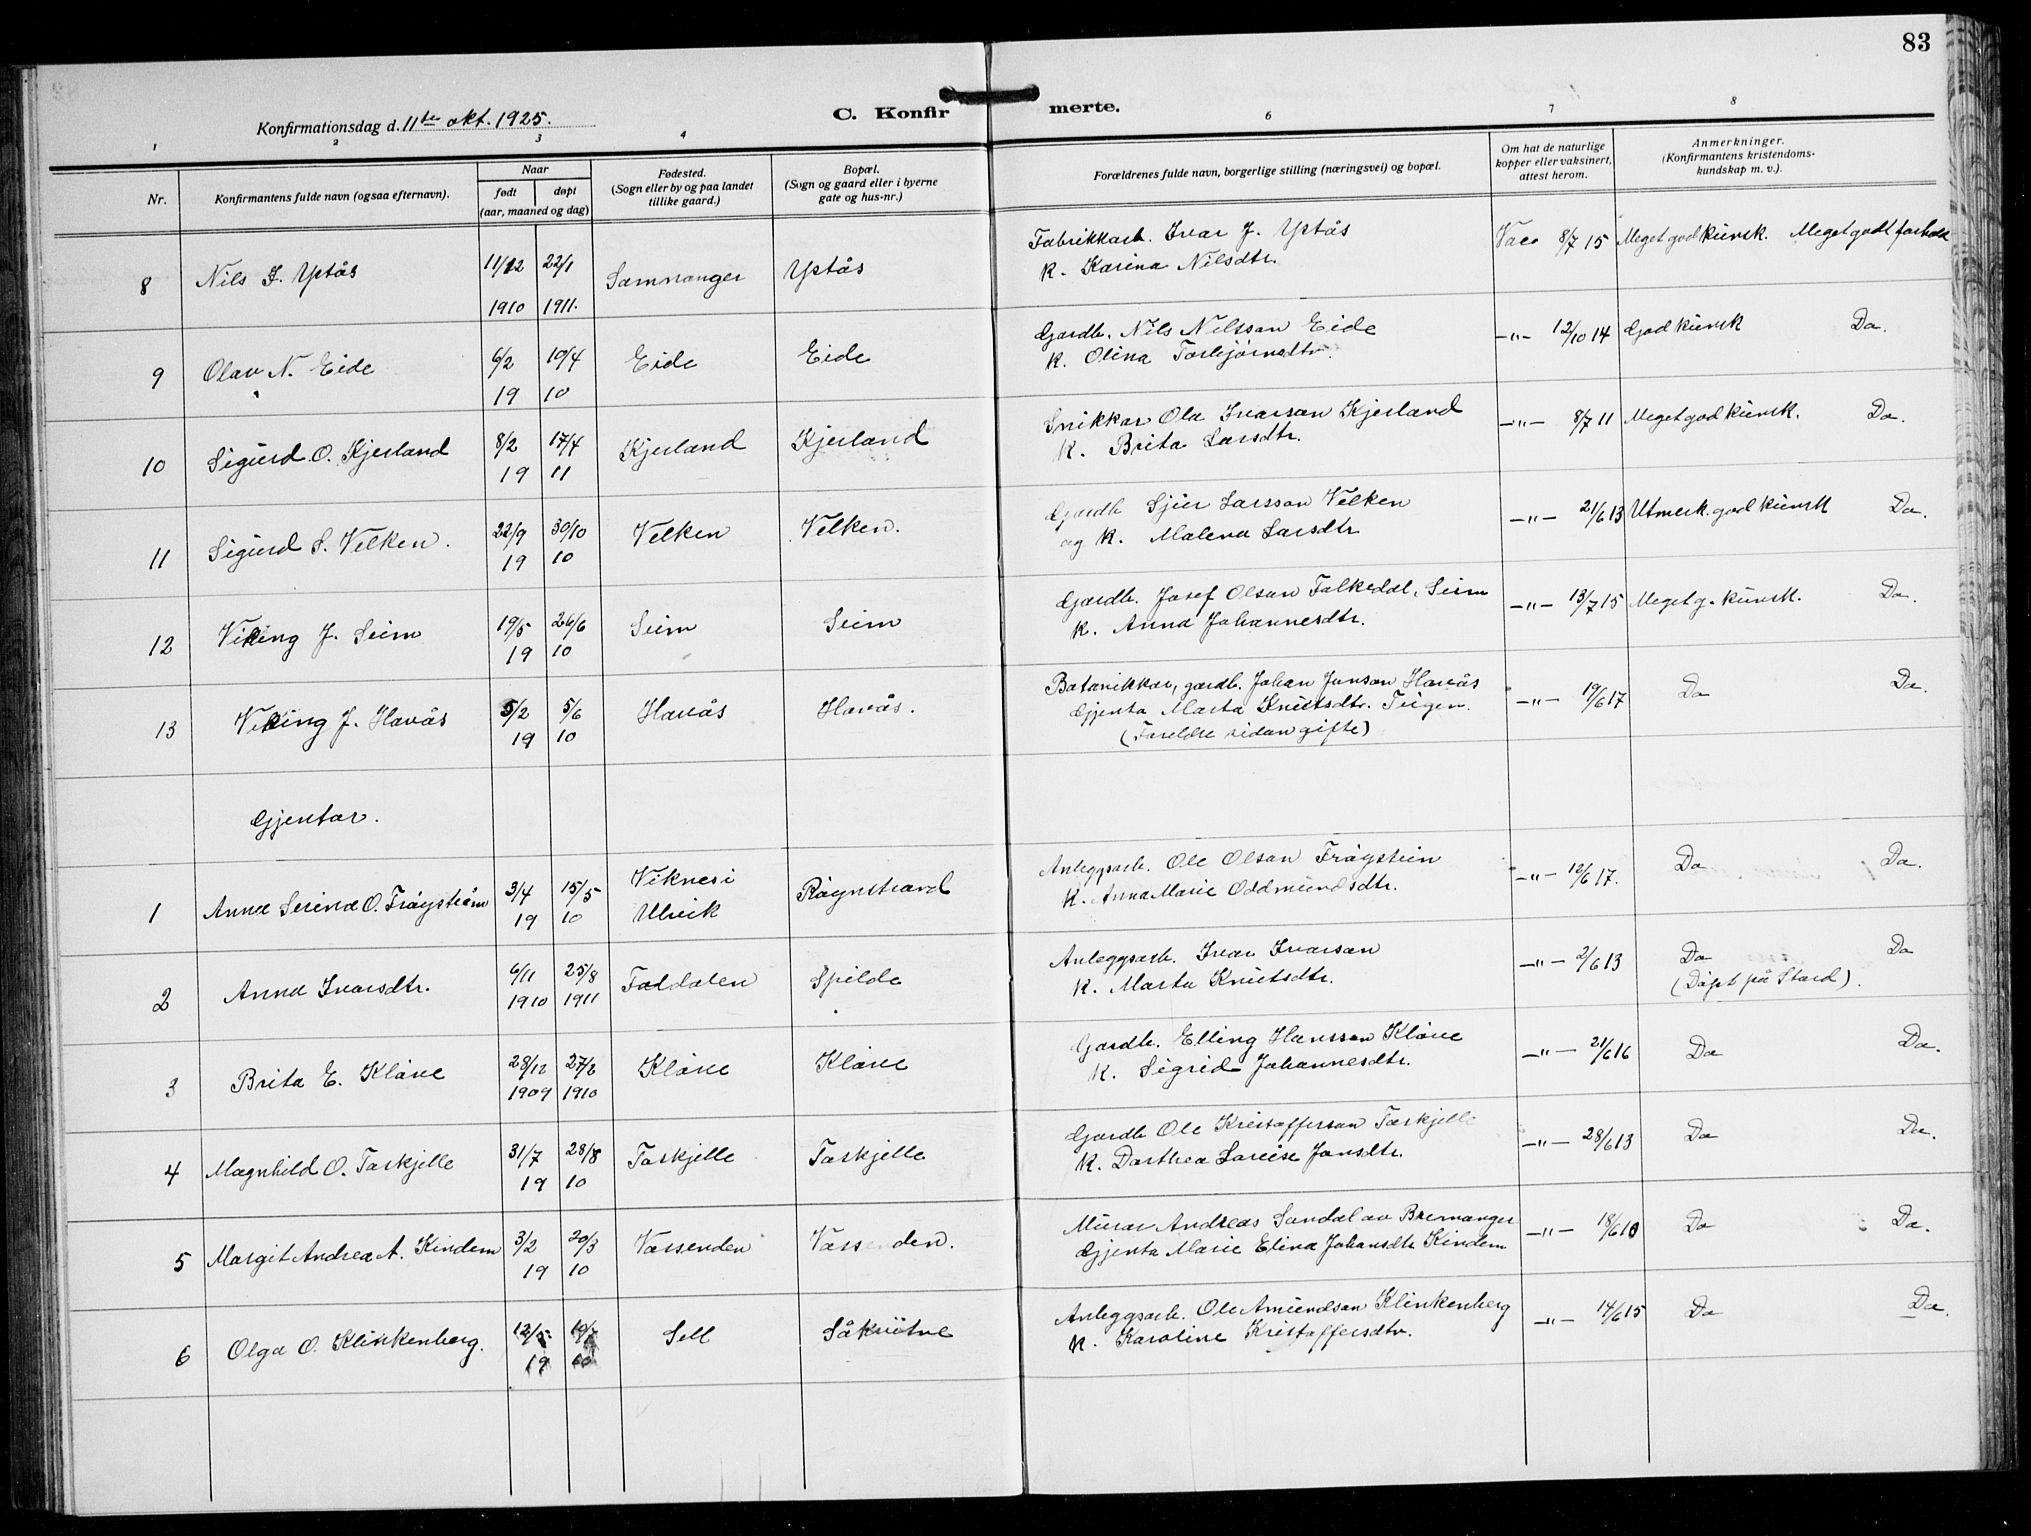 83
Konfirmationsdag d. 11te okt. 1925.
C. Konfirmerte.
1 2 3 4 6 7 8
Nr.
Konfirmantens fulde navn (ogsaa efternavn).
Naar
født døpt
(aar, maaned og dag)
Fødested.
(Sogn eller by og paa landet
tillike gaard.)
Bopæl.
(Sogn og gaard eller i byerne
gate og hus-nr.)
Forældrenes fulde navn, borgerlige stilling (næringsvei) og bopæl.
Om hat de naturlige
kopper eller vaksinert,
attest herom.
Anmerkninger.
(Konfirmantens kristendoms-
kundskap m. v.).
8 Nils I. Ystås 11/12 1910 22/1 1911. Samnanger Ystås
Fabrikkarb. Ivar J. Ystås
K. Karina Nilsdtr.
Vacc 8/7 15 Meget god kunsk. Meget godt forhold
9 Olav N. Eide 6/2 10/4 19 10 Eide Eide
Gardb. Nils Nilsson Eide
K. Olina Torbjørnsdtr.
-"- 12/10 14 God kunsk Do.
10 Sigurd O. Kjerland 8/2 17/4 19 11 Kjerland Kjerland
Snikkar Ola Ivarson Kjerland
K. Brita Larsdtr.
-"- 8/7 11 Meget god kunsk. Do.
11 Sigurd S. Velken. 22/9 30/10 19 10 Velken Velken.
Gardb Sjur Larsson Velken
og K. Malena Larsdtr
-"- 21/6 13 Utmerk. god kunsk Do.
12 Viking J. Seim 19/5 26/6 19 10 Seim Seim
Gardb. Josef Olson Folkedal, Seim
K. Anna Johannesdtr.
-"- 13/7 15 Meget g. kunsk. Do.
13 Viking J. Havås 5/2 5/6 19 10 Havås Havås.
Botnikkar, gardb. Johan Jonson Havås
Gjenta Marta Knutsdtr. Tufgen
(Foreldre sidan gifte)
-"- 19/6 17 Do Do.
Gjentor.
1 Anna Serina O. Frøystein 3/4 15/5 19 10 Viknes i
Ulvik Røynstrand
Anleggsarb. Ole Olson Frøystein
K. Anna Marie Oddmundsdtr.
-"- 12/6 17. Do Do.
2 Anna Ivarsdtr. 6/11 1910 25/8 1911 Fatdalen Spilde
Anleggsarb. Ivar Ivarson
K. Marta Knutsdtr.
-"- 2/6 13 Do Do
(Døpt på Stord).
3 Brita E. Kløve 28/12 1909 27/2 1910 Kløve Kløve
Gardb. Elling Hansson Kløve
K. Sigrid Johannesdtr.
-"- 21/6 16 Do Do.
4 Magnhild O. Torskjelle 31/7 28/8 19 10 Torskjelle Torskjelle
Gardb Ole Kristofferson Torskjelle
K. Dorthea Lovise Jonsdtr.
-"- 28/6 13 Do Do.
5 Margit Andrea A. Kindem 3/2 20/3 19 10 Vassenden Vassenden.
Murar Andreas Sandal av Bremanger
Gjenta Marie Elina Johansdtr Kindem
-"- 18/6 10 Do Do.
6 Olga O. Klinkenberg. 12/5 19 Sell Såkvitne
Anleggsarb. Ole Amundson Klinkenberg
K. Karoline Kristoffersdtr.
-"- 14/6 15 Do Do.